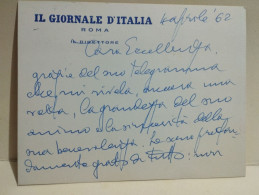 IL GIORNALE D'ITALIA
ROMA
IL DIRETTORE
4 aprile '62
Cara Eccellenza,
grazie del suo telegramma
che mi rivela, ancora una
volta, la grandezza del suo
animo e la sincerità della
sua benevolenza. Le sono profon
damente grato di tutto: